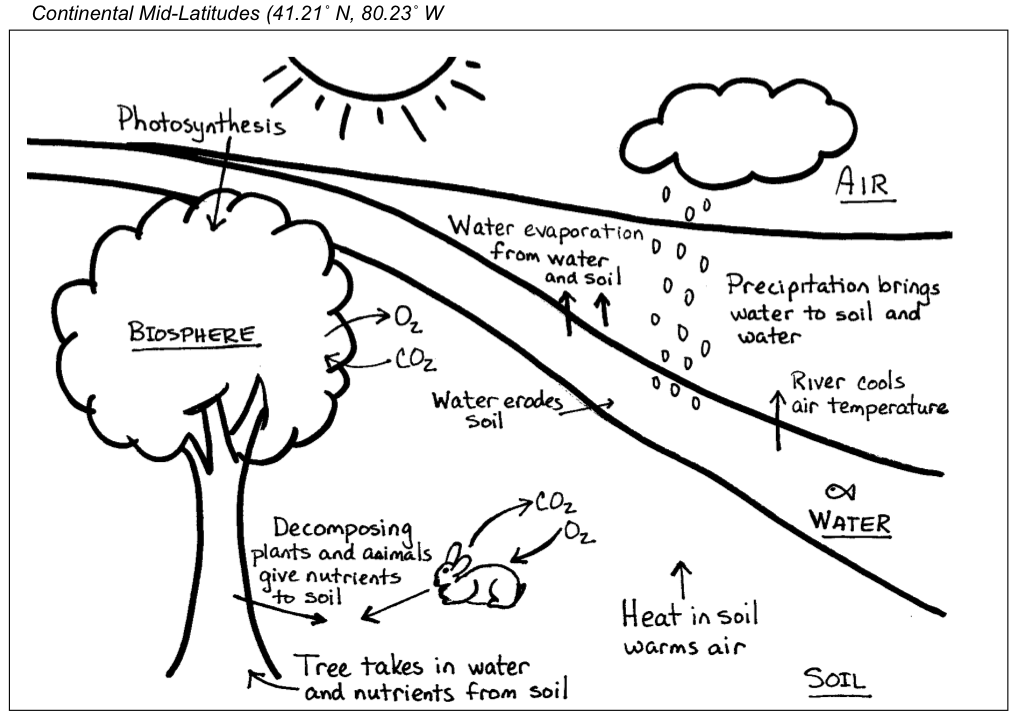 Continental Mid-Latitudes (41.21° N, 80.23° W
Photosynthesis
AIR
Water evaporation
from water
and soil
Precipitation brings
water to soil and
water
BIOSPHERE
O₂
CO₂
River cools
air temperature
Water erodes
soil
WATER
CO₂
O₂
Decomposing
plants and animals
give nutrients
to soil
Heat in soil
warms air
Tree takes in water
and nutrients from soil
SOIL